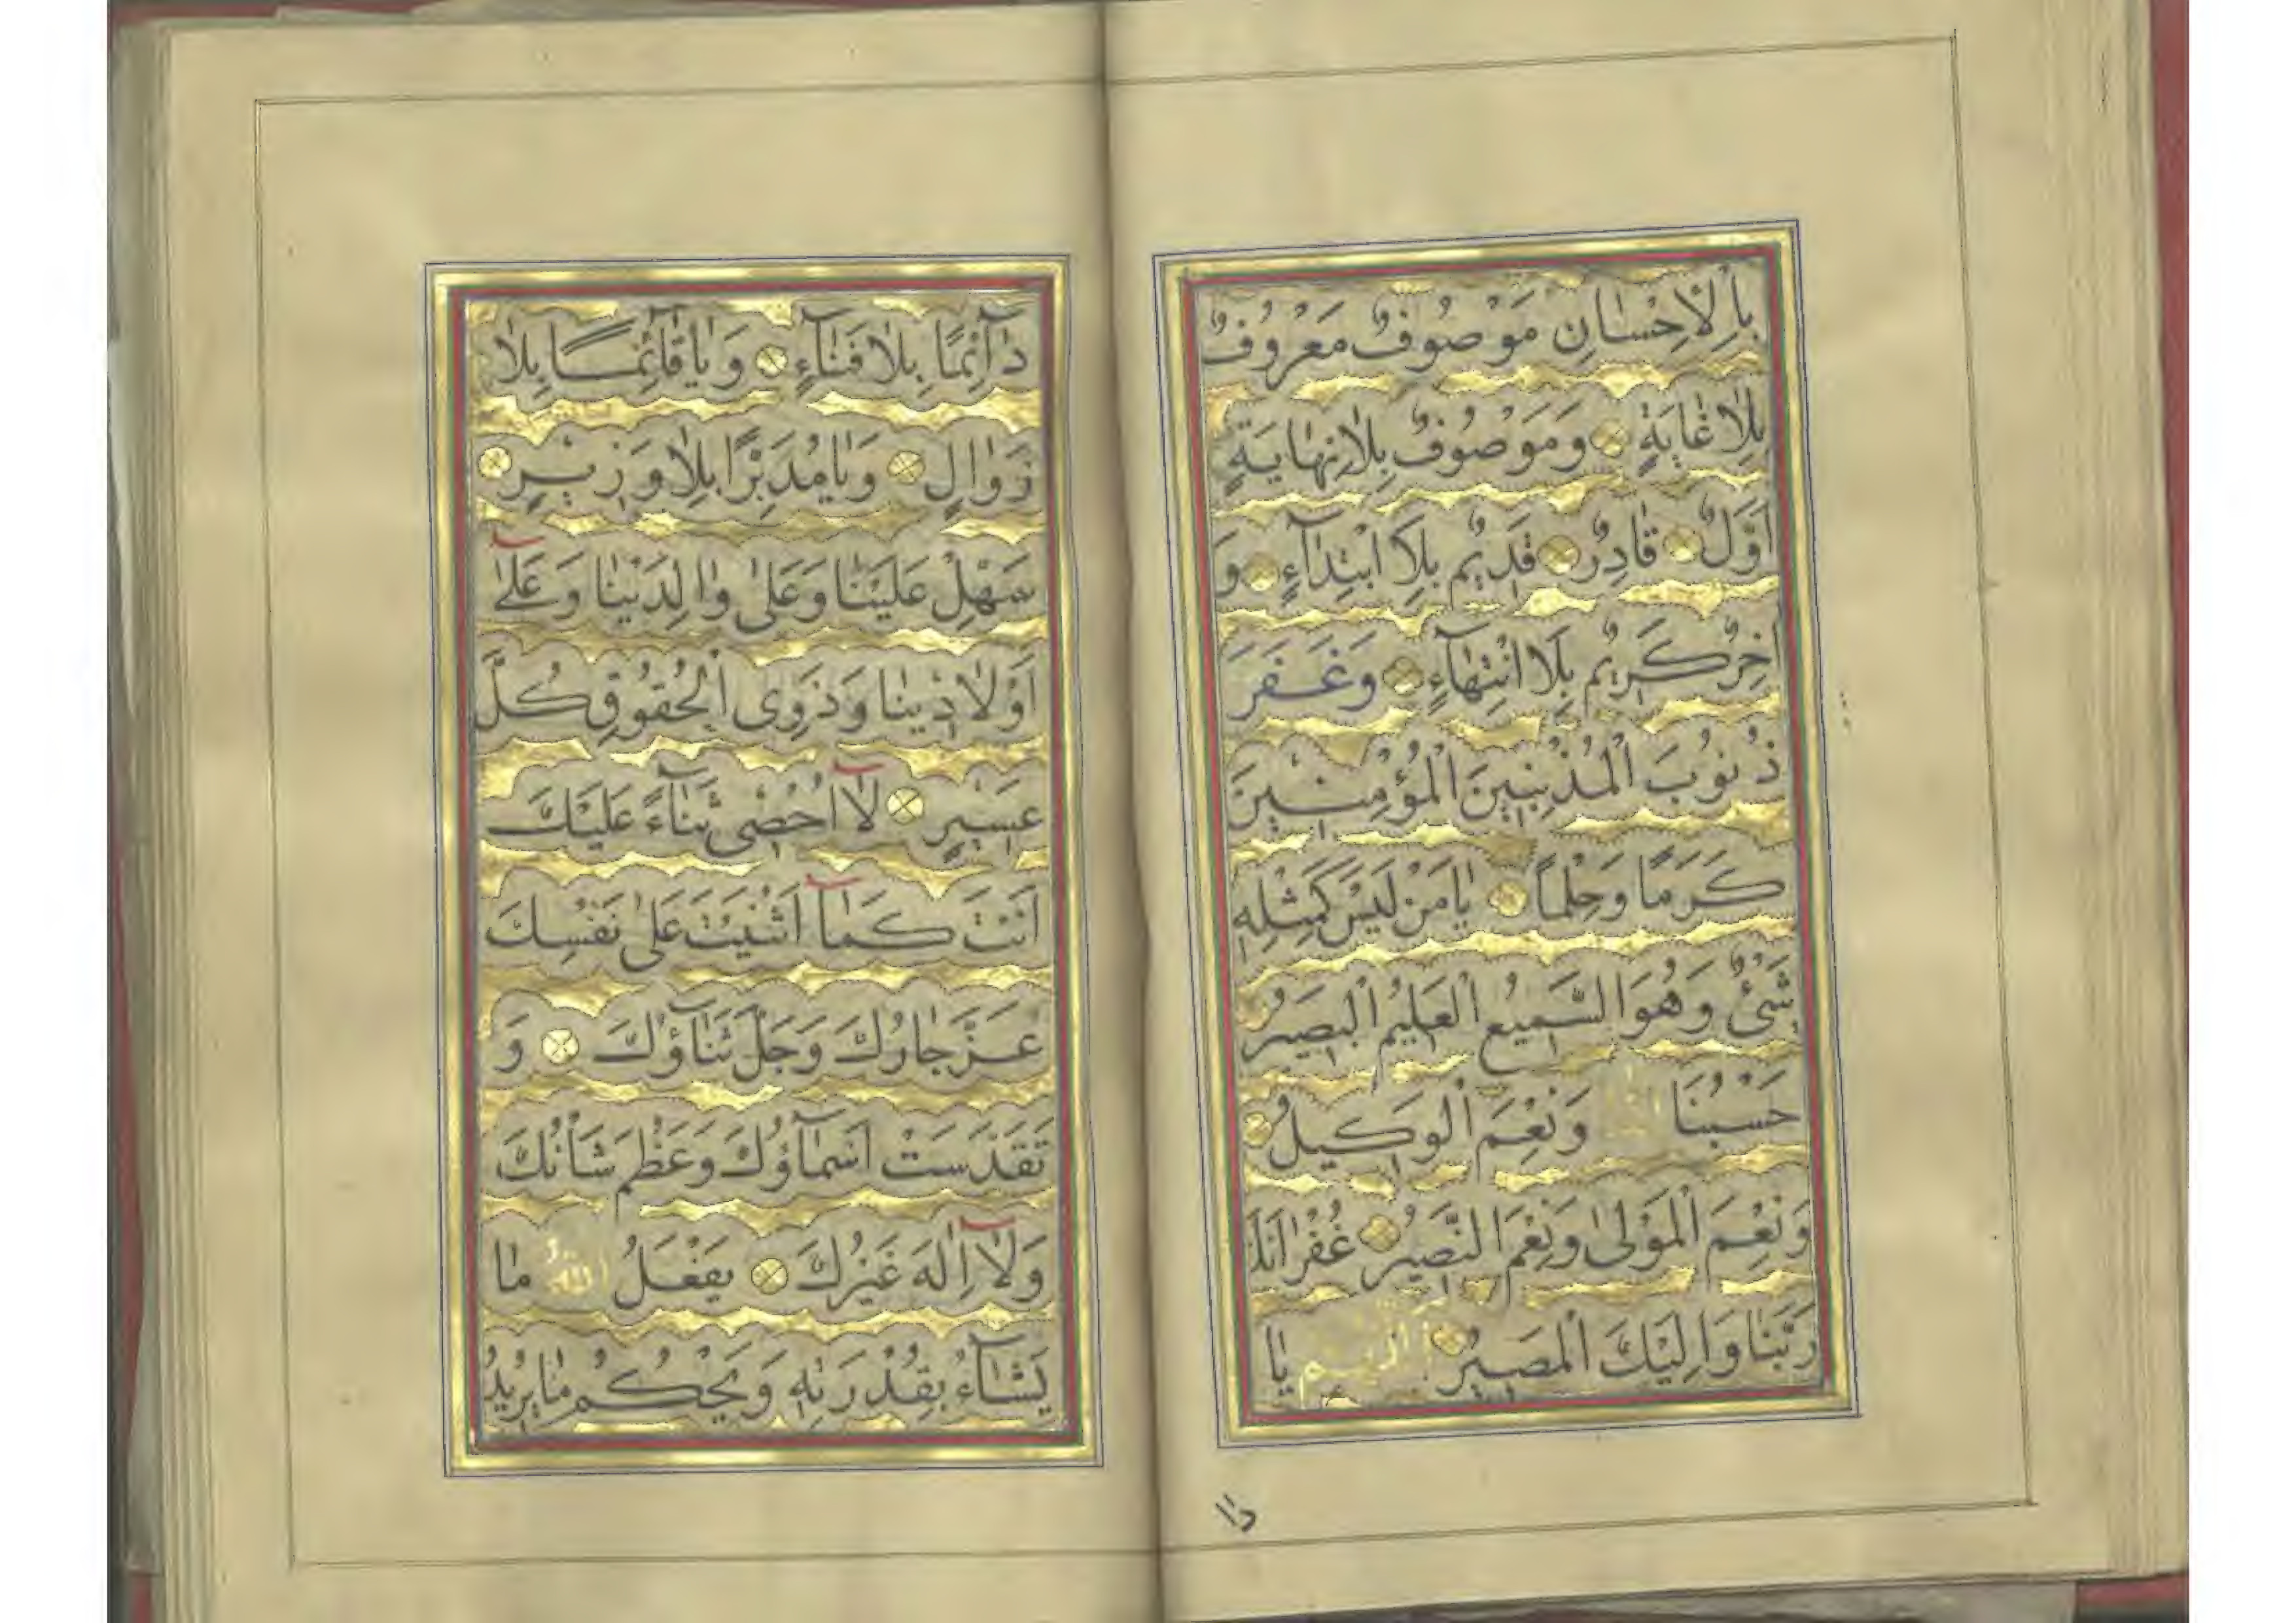 بِالْاِحْسَانِ مَوْصُوفٌ مَعْرُوفٌ
بِلَا غَايَةٍ وَمَوْصُوفٌ بِلَا نِهَايَةٍ
اَوَّلٌ قَادِرٌ قَدِيمٌ بِلَا ابْتِدَآءٍ وَ
اٰخِرٌ كَرِيمٌ بِلَا انْتِهَآءٍ وَغَفَرَ
ذُنُوبَ الْمُذْنِبِينَ الْمُؤْمِنِينَ
كَرَمًا وَحِلْمًا يَا مَنْ لَيْسَ كَمِثْلِهِ
شَىْءٌ وَهُوَ السَّمِيعُ الْعَلِيمُ الْبَصِيرُ
حَسْبُنَا اللّٰهُ وَنِعْمَ الْوَكِيلُ
وَنِعْمَ الْمَوْلىٰ وَنِعْمَ النَّصِيرُ غُفْرَانَكَ
رَبَّنَا وَاِلَيْكَ الْمَصِيرُ اَللّٰهُمَّ يَا
دا
دَآئِمًا بِلَا فَنَآءٍ وَيَا قَآئِمًا بِلَا
زَوَالٍ وَيَا مُدَبِّرًا بِلَا وَزِيرٍ
سَهِّلْ عَلَيْنَا وَعَلىٰ وَالِدَيْنَا وَعَلىٰٓ
اَوْلَادِنَا وَذَوِى الْحُقُوقِ كُلَّ
عَسِيرٍ لَآ اُحْصِى ثَنَآءً عَلَيْكَ
اَنْتَ كَمَآ اَثْنَيْتَ عَلىٰ نَفْسِكَ
عَزَّ جَارُكَ وَجَلَّ ثَنَآؤُكَ وَ
تَقَدَّسَتْ اَسْمَآؤُكَ وَعَظُمَ شَأْنُكَ
وَلَآ اِلٰهَ غَيْرُكَ يَفْعَلُ اللّٰهُ مَا
يَشَآءُ بِقُدْرَتِهِ وَيَحْكُمُ مَا يُرِيدُ